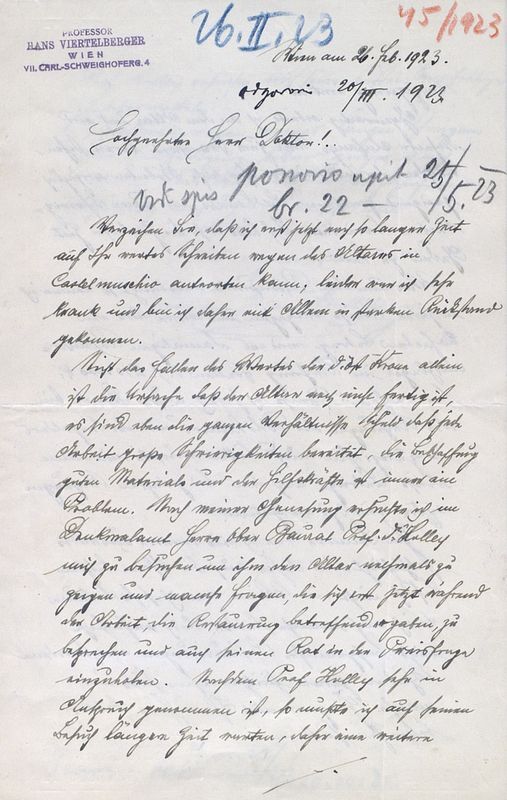 PROFESSOR
HANS VIERTELBERGER
WIEN
VII. CARL-SCHWEIGHOFERG. 4
26.II.23
45/1923
Wien am 26. Feb. 1923.
odgovor 20/III. 1923
Hochgeehrter Herr Doktor!..
ponovio upit 25/5.23
br. 22 —
Verzeihen Sie, daß ich erst jetzt nach so langer Zeit
auf Ihr wertes Schreiben wegen des Altares in
Castelmuschio antworten kann, leider war ich sehr
krank und bin ich daher mit Allem in starken Rückstand
gekommen.
Nicht das Fallen des Wertes der d.öst. Krone allein
ist die Ursache daß der Altar noch nicht fertig ist,
es sind eben die ganzen Verhältnisse Schuld daß jede
Arbeit große Schwierigkeiten bereitet, die Beschaffung
guten Materials und der Hilfskräfte ist immer ein
Problem. Nach meiner Genesung ersuchte ich im
Denkmalamt Herrn Ober Baurat Prof. D. Holley
mich zu besuchen um ihm den Altar nochmals zu
zeigen und manche Fragen, die sich erst jetzt während
der Arbeit, die Restaurierung betreffend ergaben, zu
besprechen und auch seinen Rat in der Preisfrage
einzuholen. Nachdem Prof Holley sehr in
Anspruch genommen ist, so mußte ich auf seinen
Besuch längere Zeit warten, daher eine weitere